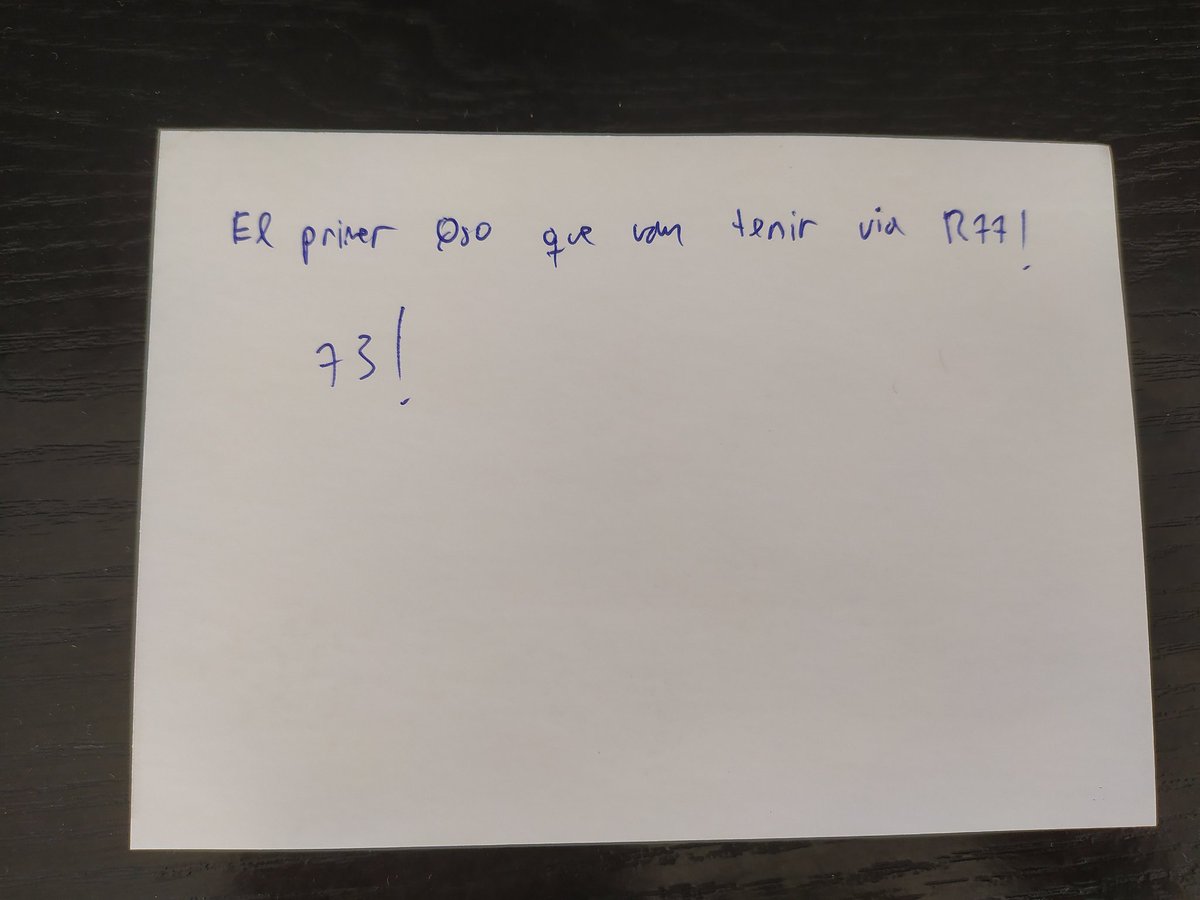 El primer QSO que vam tenir via R77!
73!